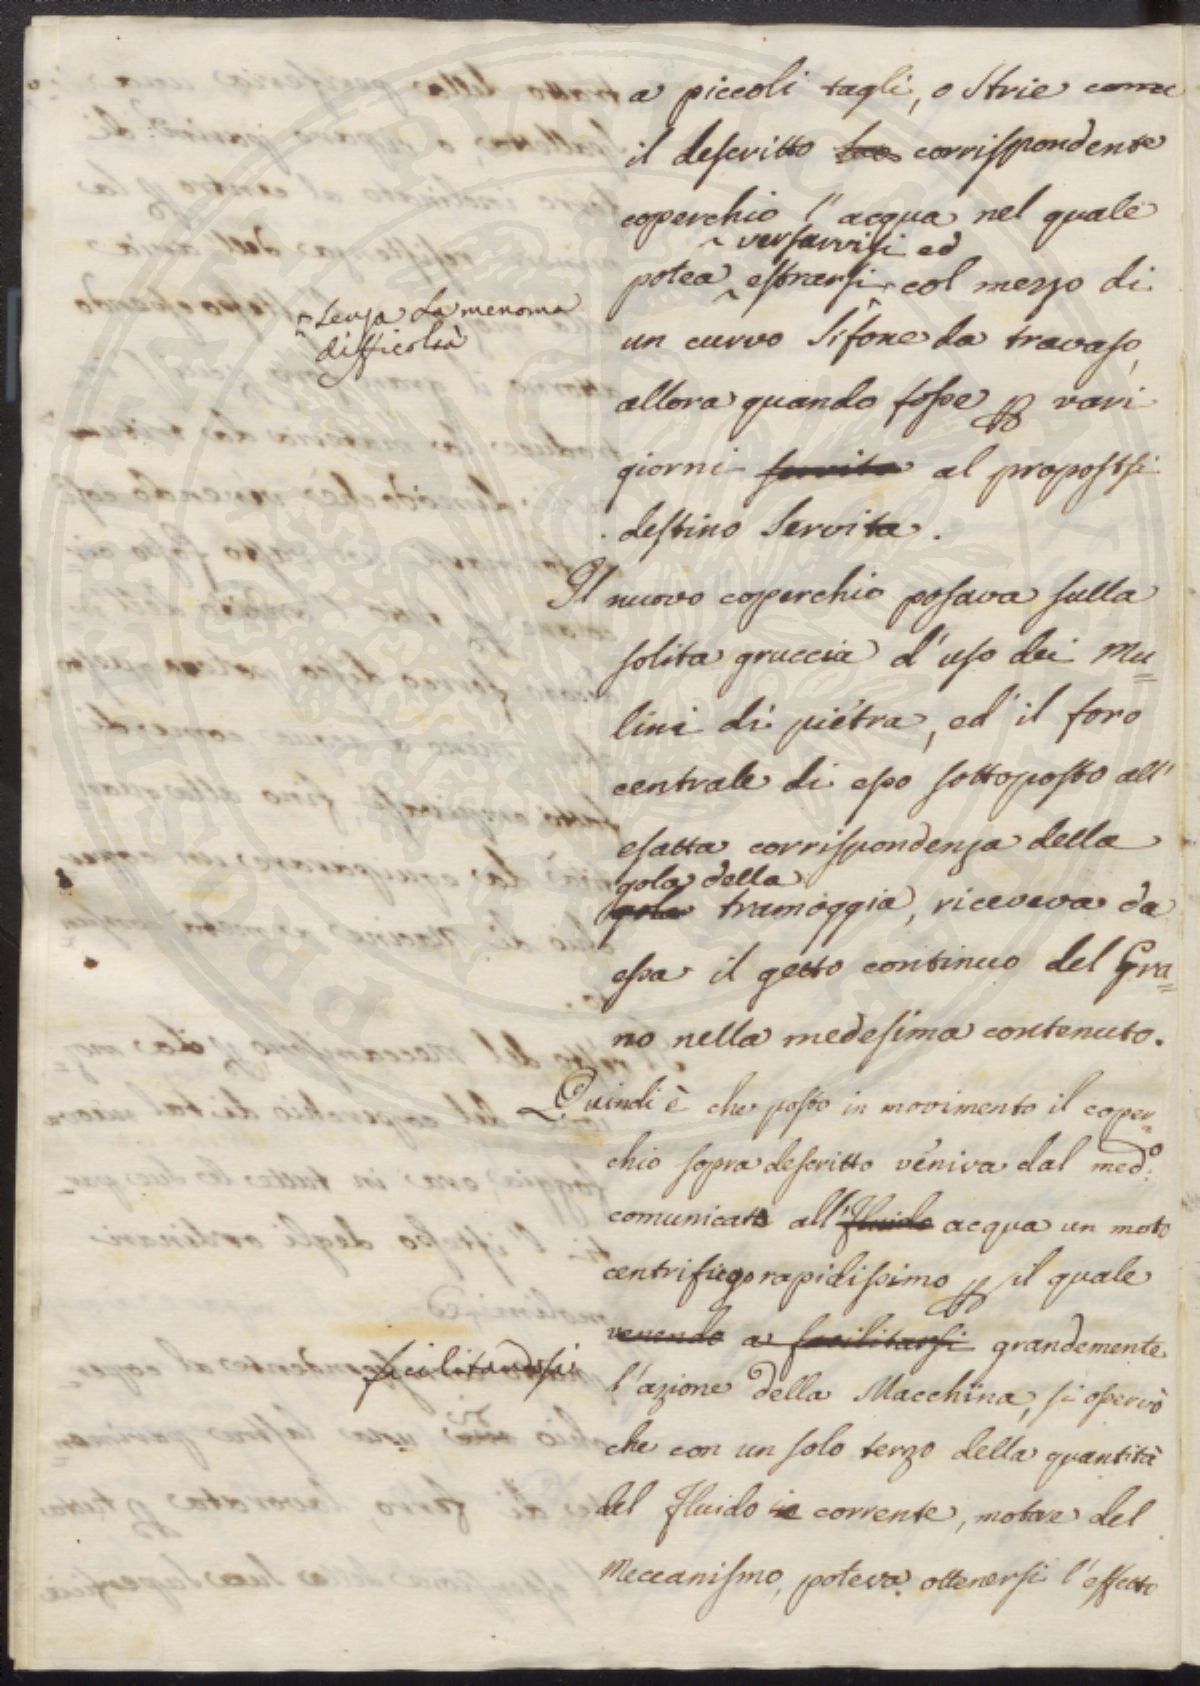 a piccoli tagli, o Strie come
il descritto corrispondente
coperchio l'acqua nel quale
versarvisi ed
potea estrarsi col mezzo di
senza la menoma
difficoltà
un curvo Sifone da travaso,
allora quando fosse p vari
giorni servita al propostosi
destino Servita.
Il nuovo coperchio posava sulla
solita gruccia d'uso dei Mu=
lini di piétra, ed il foro
centrale di esso sottoposto all'
esatta corrispondenza della
gola della
gola tramoggia, riceveva da
essa il getto continuo del Gra=
no nella medesima contenuto.
Quindi è che posto in movimento il coper=
chio sopra descritto véniva dal med.o
comunicato all'fluido acqua un moto
centrifugo rapidissimo p il quale
venendo a facilitarsi grandemente
facilitandosi
l'azione della Macchina, si osservò
che con un solo terzo della quantità
del fluido in corrente, motore del
Meccanismo, poteva ottenersi l'effetto